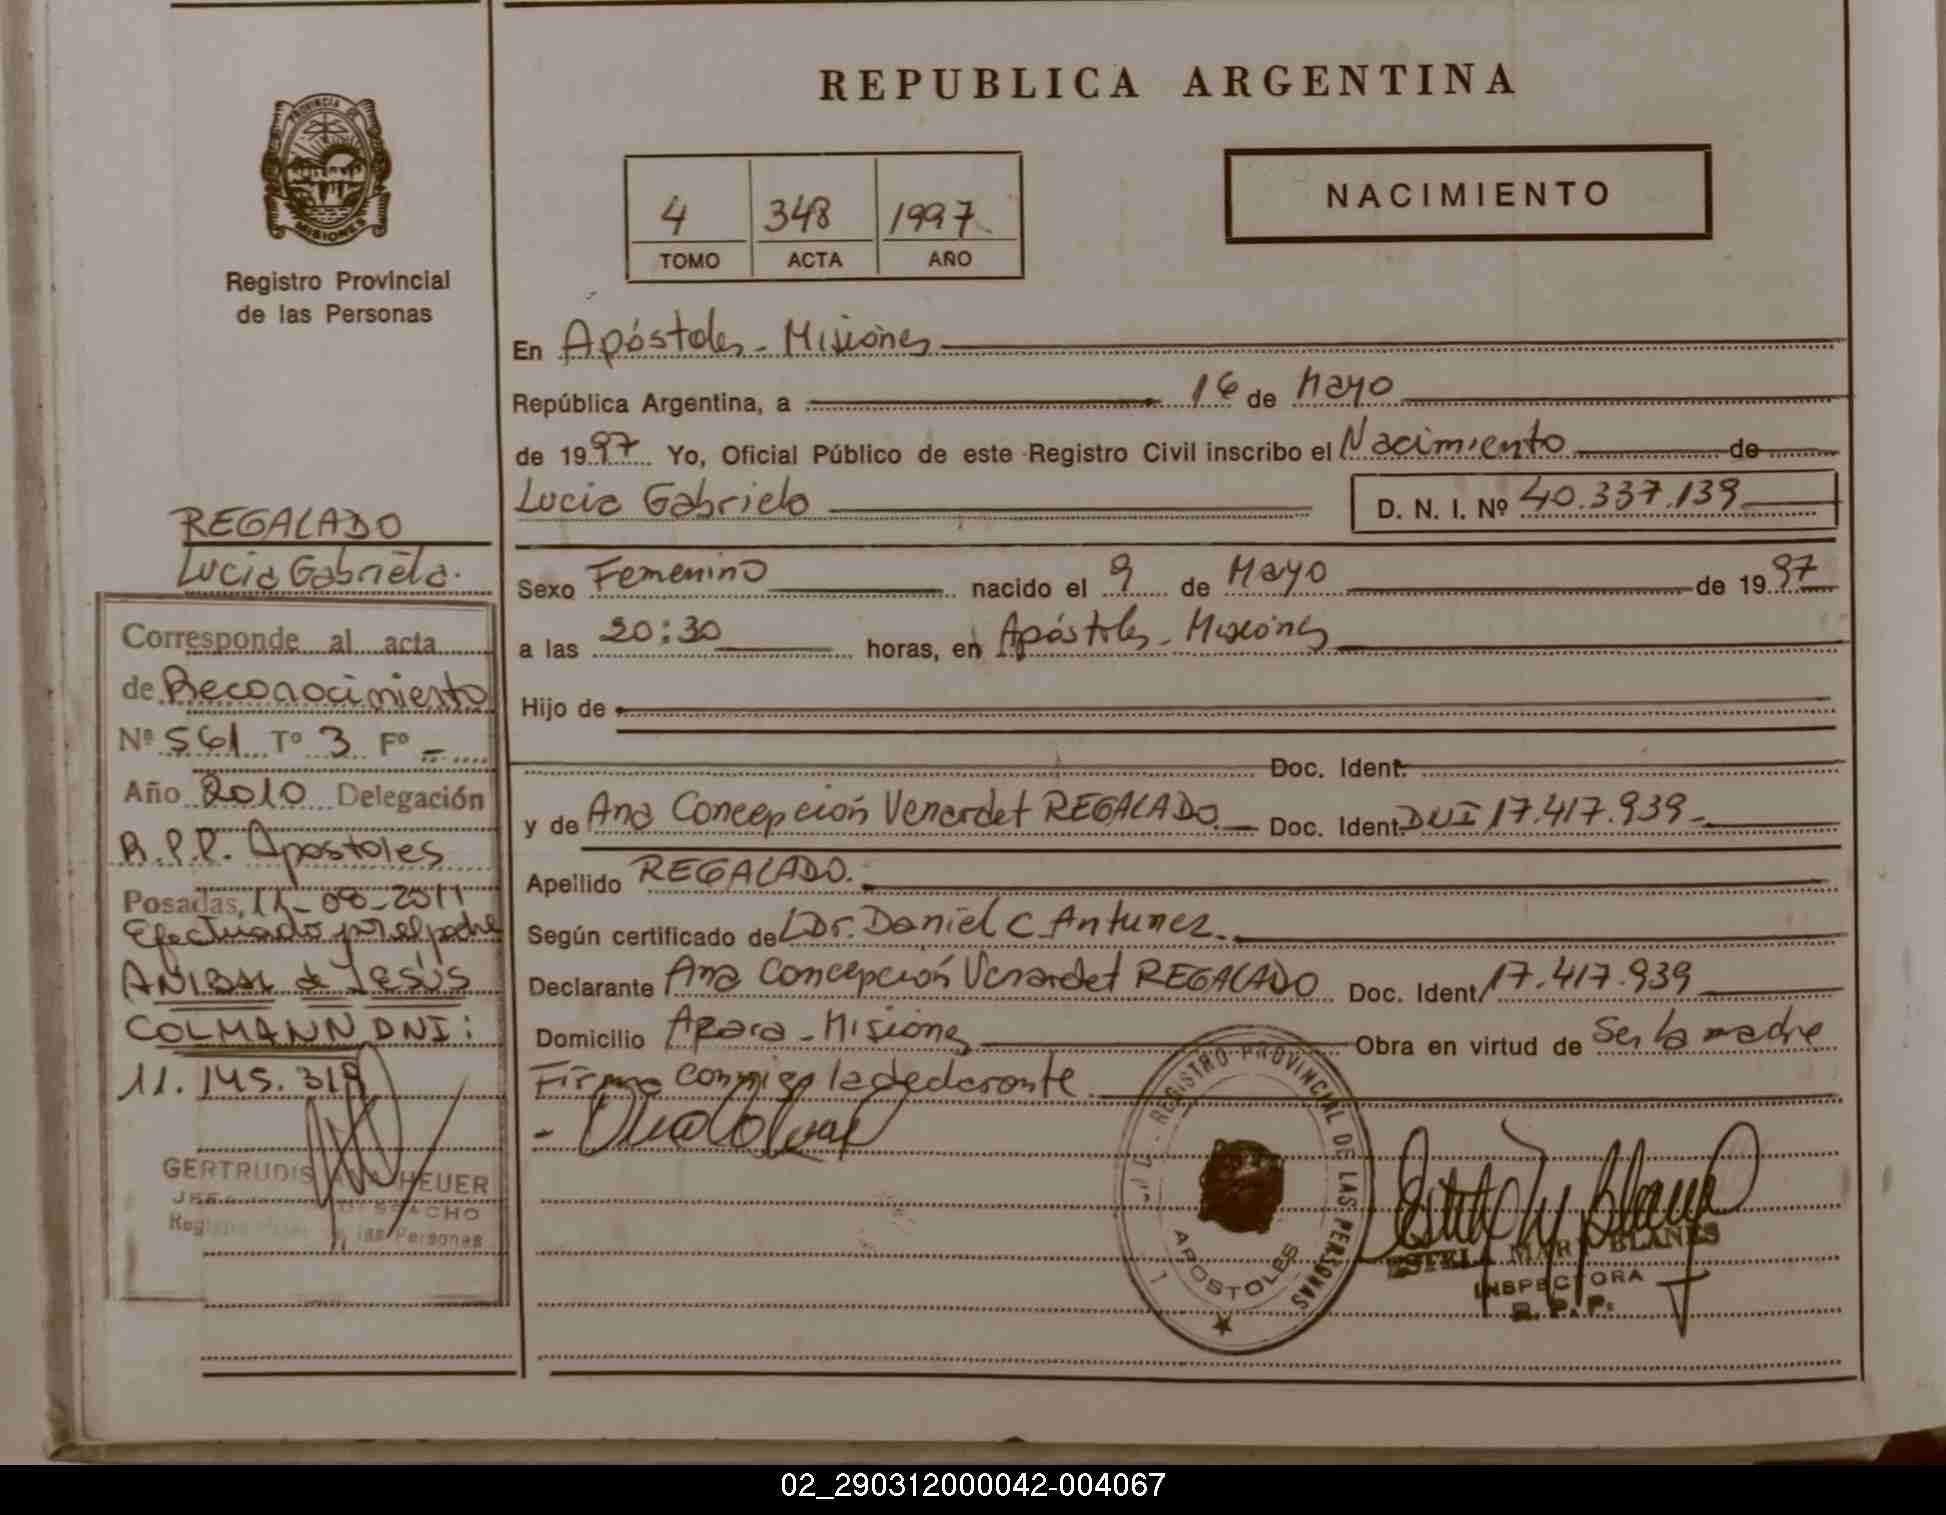 REPUBLICA ARGENTINA
PROVINCIA DE
MISIONES
Registro Provincial
de las Personas
4 348 1997
TOMO ACTA AÑO
NACIMIENTO
En Apóstoles - Misiones
República Argentina, a 16 de Mayo
de 1997 Yo, Oficial Público de este Registro Civil inscribo el Nacimiento de
Lucia Gabriela
D. N. I. Nº 40.337.139
Sexo Femenino nacido el 9 de Mayo de 1997
a las 20:30 horas, en Apóstoles - Misiones
Hijo de
Doc. Ident.
y de Ana Concepción Venardet REGALADO Doc. Ident. DNI 17.417.939
Apellido REGALADO.
Según certificado de Dr. Daniel C. Antunez.
Declarante Ana Concepción Venardet REGALADO Doc. Ident. 17.417.939
Domicilio Azara - Misiones Obra en virtud de Ser la madre
Firma conmigo la declarante
REGALADO
Lucia Gabriela.
Corresponde al acta
de Reconocimiento
Nº 561 Tº 3 Fº -
Año 2010 Delegación
R.P.P. Apostoles
Posadas, 11-08-2011
Efectuado por el padre
ANIBAL de JESÚS
COLMANN DNI:
11.145.318
GERTRUDIS HEUER
DESPACHO
las Personas
REGISTRO PROVINCIAL DE LAS PERSONAS
APOSTOLES
ESTELA MARY BLANES
INSPECTORA
R. P. P.
02_290312000042-004067